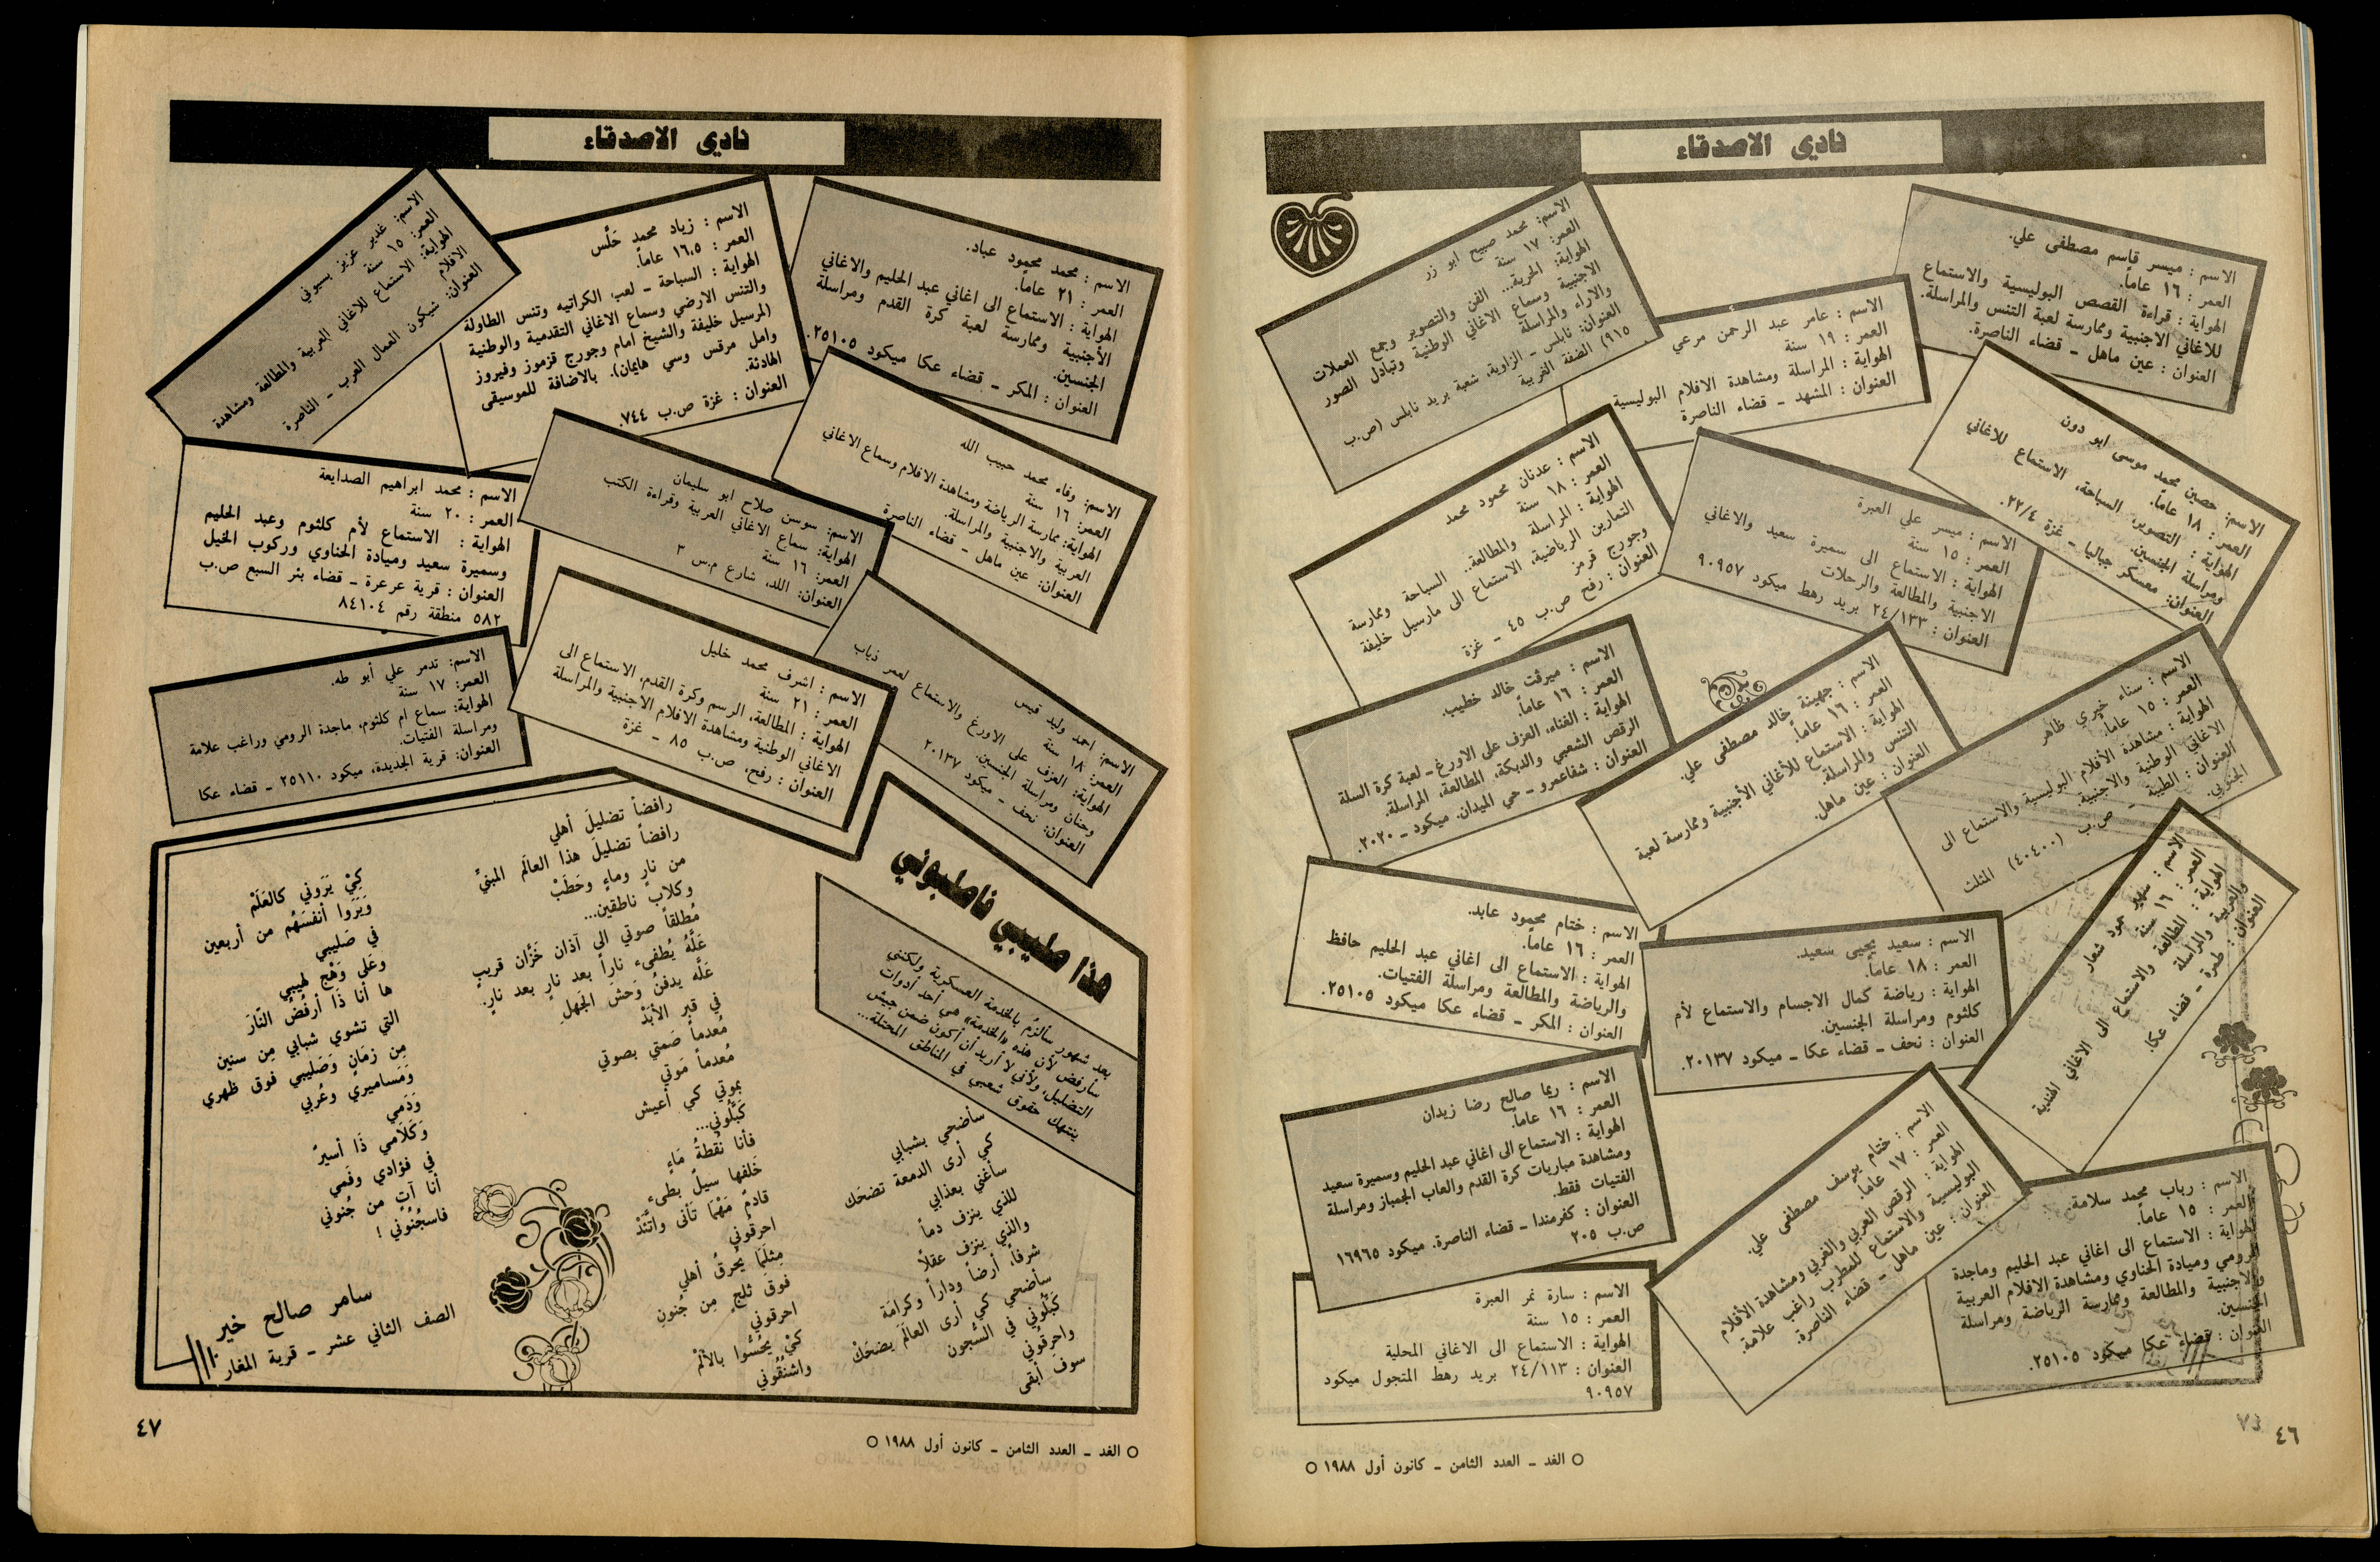 نادي الاصدقاء
الاسم : ميسر قاسم مصطفى علي.
العمر : ١٦ عاماً.
الهواية : قراءة القصص البوليسية والاستماع
للاغاني الاجنبية وممارسة لعبة التنس والمراسلة.
العنوان : عين ماهل ـ قضاء الناصرة.
الاسم : عامر عبد الرحمن مرعي
العمر : ١٩ سنة
الهواية : المراسلة ومشاهدة الافلام البوليسية
العنوان : المشهد ـ قضاء الناصرة
الاسم: محمد صبيح ابو زر
العمر: ١٧ سنة
الهواية: الحرية... الفن والتصوير وجمع العملات
الاجنبية وسماع الاغاني الوطنية وتبادل الصور
والاراء والمراسلة
العنوان: نابلس ـ الزاوية، شعبة بريد نابلس (ص.ب
٩١٥) الضفة الغربية
الاسم: حصين محمد موسى ابو دون
العمر: ١٨ عاماً.
الهواية : التصوير، السباحة، الاستماع للاغاني
ومراسلة الجنسين.
العنوان: معسكر جباليا ـ غزة ٢٢/٤.
الاسم : ميسر علي العبرة
العمر : ١٥ سنة
الهواية : الاستماع الى سميرة سعيد والاغاني
الاجنبية والمطالعة والرحلات
العنوان : ٢٤/١٣٣ بريد رهط ميكود ٩٠٩٥٧
الاسم : عدنان محمود محمد
العمر : ١٨ سنة
الهواية : المراسلة والمطالعة.. السباحة وممارسة
التمارين الرياضية، الاستماع الى مارسيل خليفة
وجورج قرمز
العنوان : رفح ص.ب ٤٥ ـ غزة
الاسم : سناء خيري ظاهر
العمر : ١٥ عاماً.
الهواية : مشاهدة الأفلام البوليسية والاستماع الى
الاغاني الوطنية والاجنبية
العنوان : الطيبة ـ ص.ب (٤٠٤٠٠) المثلث
الجنوبي.
الاسم : جهينة خالد مصطفى علي.
العمر : ١٦ عاماً.
الهواية : الاستماع للأغاني الأجنبية وممارسة لعبة
التنس والمراسلة.
العنوان : عين ماهل.
الاسم : ميرفت خالد خطيب.
العمر : ١٦ عاماً.
الهواية : الغناء، العزف على الاورغ ـ لعبة كرة السلة
الرقص الشعبي والدبكة، المطالعة، المراسلة.
العنوان : شفاعمرو ـ حي الميدان. ميكود ـ ٢٠٢٠٠.
الاسم : سهير حمود شعار
العمر : ١٦ سنة
الهواية : المطالعة والاستماع الى الاغاني الهندية
والعربية والمراسلة
العنوان : طمرة ـ قضاء عكا.
الاسم : سعيد يحيى سعيد.
العمر : ١٨ عاماً.
الهواية : رياضة كمال الاجسام والاستماع لأم
كلثوم ومراسلة الجنسين.
العنوان : نحف ـ قضاء عكا ـ ميكود ٢٠١٣٧.
الاسم : ختام محمود عابد.
العمر : ١٦ عاماً.
الهواية : الاستماع الى اغاني عبد الحليم حافظ
والرياضة والمطالعة ومراسلة الفتيات.
العنوان : المكر ـ قضاء عكا ميكود ٢٥١٠٥.
الاسم : ريما صالح رضا زيدان
العمر : ١٦ عاماً.
الهواية : الاستماع الى اغاني عبد الحليم وسميرة سعيد
ومشاهدة مباريات كرة القدم والعاب الجمباز ومراسلة
الفتيات فقط.
العنوان : كفرمندا ـ قضاء الناصرة. ميكود ١٦٩٦٥
ص.ب ٢٠٥
الاسم : ختام يوسف مصطفى علي.
العمر : ١٧ عاماً.
الهواية : الرقص العربي والغربي ومشاهدة الأفلام
البوليسية والاستماع للمطرب راغب علامة.
العنوان : عين ماهل ـ قضاء الناصرة.
الاسم : رباب محمد سلامة.
العمر : ١٥ عاماً.
الهواية : الاستماع الى اغاني عبد الحليم وماجدة
الرومي وميادة الحناوي ومشاهدة الافلام العربية
والاجنبية والمطالعة وممارسة الرياضة ومراسلة
الجنسين.
العنوان : قضاء عكا ميكود ٢٥١٠٥.
الاسم : سارة نمر العبرة
العمر : ١٥ سنة
الهواية : الاستماع الى الاغاني المحلية
العنوان : ٢٤/١١٣ بريد رهط المتجول ميكود
٩٠٩٥٧
٤٦
○ الغد ـ العدد الثامن ـ كانون أول ١٩٨٨ ○
نادي الاصدقاء
الاسم : محمد محمود عباد.
العمر : ٢١ عاماً.
الهواية : الاستماع الى اغاني عبد الحليم والاغاني
الأجنبية وممارسة لعبة كرة القدم ومراسلة
الجنسين.
العنوان : المكر ـ قضاء عكا ميكود ٢٥١٠٥.
الاسم : زياد محمد حَلَّس
العمر : ١٦،٥ عاماً.
الهواية : السباحة ـ لعب الكراتيه وتنس الطاولة
والتنس الارضي وسماع الاغاني التقدمية والوطنية
(لمرسيل خليفة والشيخ امام وجورج قزموز وفيروز
وامل مرقس وسي هايمان). بالاضافة للموسيقى
الهادئة.
العنوان : غزة ص.ب ٧٤٤.
الاسم: غدير عزيز بسيوني
العمر: ١٥ سنة
الهواية: الاستماع للاغاني العربية والمطالعة ومشاهدة
الافلام
العنوان: شيكون العمال العرب ـ الناصرة
الاسم: وفاء محمد حبيب الله
العمر: ١٦ سنة
الهواية: ممارسة الرياضة ومشاهدة الافلام وسماع الاغاني
العربية والاجنبية والمراسلة.
العنوان: عين ماهل ـ قضاء الناصرة
الاسم: سوسن صلاح ابو سليمان
الهواية: سماع الاغاني العربية وقراءة الكتب
العمر: ١٦ سنة
العنوان: اللد، شارع م.س ٣
الاسم : محمد ابراهيم الصدايعة
العمر : ٢٠ سنة
الهواية : الاستماع لأم كلثوم وعبد الحليم
وسميرة سعيد وميادة الحناوي وركوب الخيل
العنوان : قرية عرعرة ـ قضاء بئر السبع ص.ب
٥٨٢ منطقة رقم ٨٤١٠٤
الاسم: احمد وليد قيس
العمر: ١٨ سنة
الهواية: العزف على الاورغ والاستماع لعمر ذياب
وحنان ومراسلة الجنسين.
العنوان: نحف ـ ميكود ٢٠١٣٧
الاسم : اشرف محمد خليل
العمر : ٢١ سنة
الهواية : المطالعة، الرسم وكرة القدم، الاستماع الى
الاغاني الوطنية ومشاهدة الافلام الاجنبية والمراسلة
العنوان : رفح، ص.ب ٨٥ ـ غزة
الاسم: تدمر علي أبو طه.
العمر: ١٧ سنة
الهواية: سماع ام كلثوم، ماجدة الرومي وراغب علامة
ومراسلة الفتيات.
العنوان: قرية الجديدة، ميكود ٢٥١١٠ ـ قضاء عكا
هذا صليبي فاصلبوني
بعد شهور سألزمُ بالخدمة العسكرية ولكنني
سأرفض لأن هذه «الخدمة» هي أحد أدوات
التضليل، ولأني لا أريد أن أكون ضمن جيش
ينتهك حقوق شعبي في المناطق المحتلة...
سأضحي بشبابي
كي أرى الدمعة تضحَك
سأغني بعذابي
للذي ينزف دماً
والذي ينزف عقلاً
شرفاً، أرضاً وداراً وكرامَة
سأضحي كي أرى العالَمَ يضحَكْ
كَبِّلُوني في السُّجون
واحرقُوني
سوفَ أبقى
رافضاً تضليلَ أهلي
رافضاً تضليلَ هذا العالَم المبنيّ
من نارٍ وماءٍ وحَطَبْ
وكلاب ناطقين...
مُطلقاً صوتي الى آذان خَزَّان قريبٍ
عَلَّهُ يُطفىء ناراً بعد نارٍ بعد نارٍ.
عَلَّه يدفنُ وَحشَ الجَهلِ
في قبر الأبَدْ
مُعدماً صَمتي بصوتي
مُعدماً مَوتي
بموتي كي أعيش
كَبِّلُوني...
فأنا نُقطةُ مَاءٍ
خَلفها سيلٌ بطىءٌ
قادمٌ مَهْمَا تَأَنى واتَّئَدْ
احرقُوني
مِثلَمَا يُحرقُ أهلي
فوقَ ثلجٍ مِن جُنونِ
احرقوني
كيْ يحُسُّوا بالألَمْ
واشنُقُوني
كيْ يَرَوني كالعَلَمْ
وَيَرَوا أنفسَهُم من أربعين
في صَليبي
وعَلى وَهْجِ لهيبي
ها أنا ذَا أرفُضُ النَّارَ
التي تشوي شبابي مِن سنين
مِن زمَانٍ وَصَليبي فوق ظهري
وَمَساميري وعُربي
وَدَمِي
وَكَلَامي ذَا أسيرٌ
في فؤادي وفَمي
أنا آتٍ من جُنوني
فاسجُنُوني !
سامر صالح خير
الصف الثاني عشر ـ قرية المغار
٤٧
○ الغد ـ العدد الثامن ـ كانون أول ١٩٨٨ ○